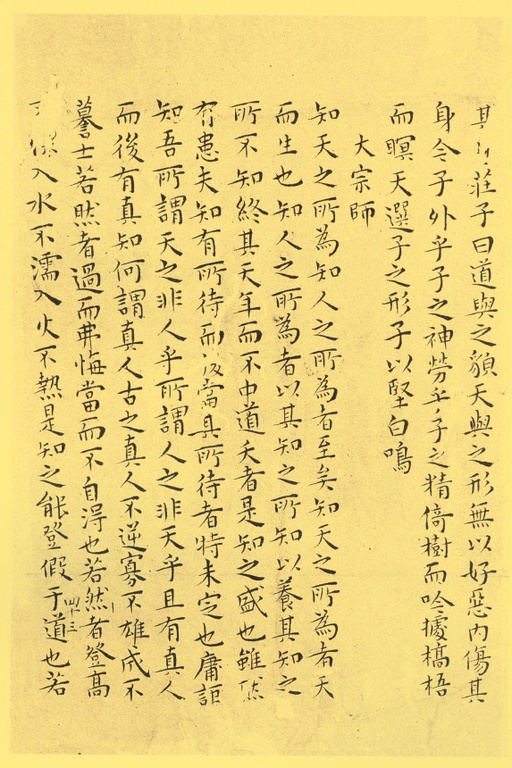 其　莊子曰道與之貌天與之形無以好惡內傷其
身今子外乎子之神勞乎子之精倚樹而吟據槁梧
而瞑天選子之形子以堅白鳴
大宗師
知天之所為知人之所為者至矣知天之所為者天
而生也知人之所為者以其知之所知以養其知之
所不知終其天年而不中道夭者是知之盛也雖然
有患夫知有所待而後當其所待者特未定也庸詎
知吾所謂天之非人乎所謂人之非天乎且有真人
而後有真知何謂真人古之真人不逆寡不雄成不
謩士若然者過而弗悔當而不自得也若然者登高
不慄入水不濡入火不熱是知之能登假于道也若
四十三